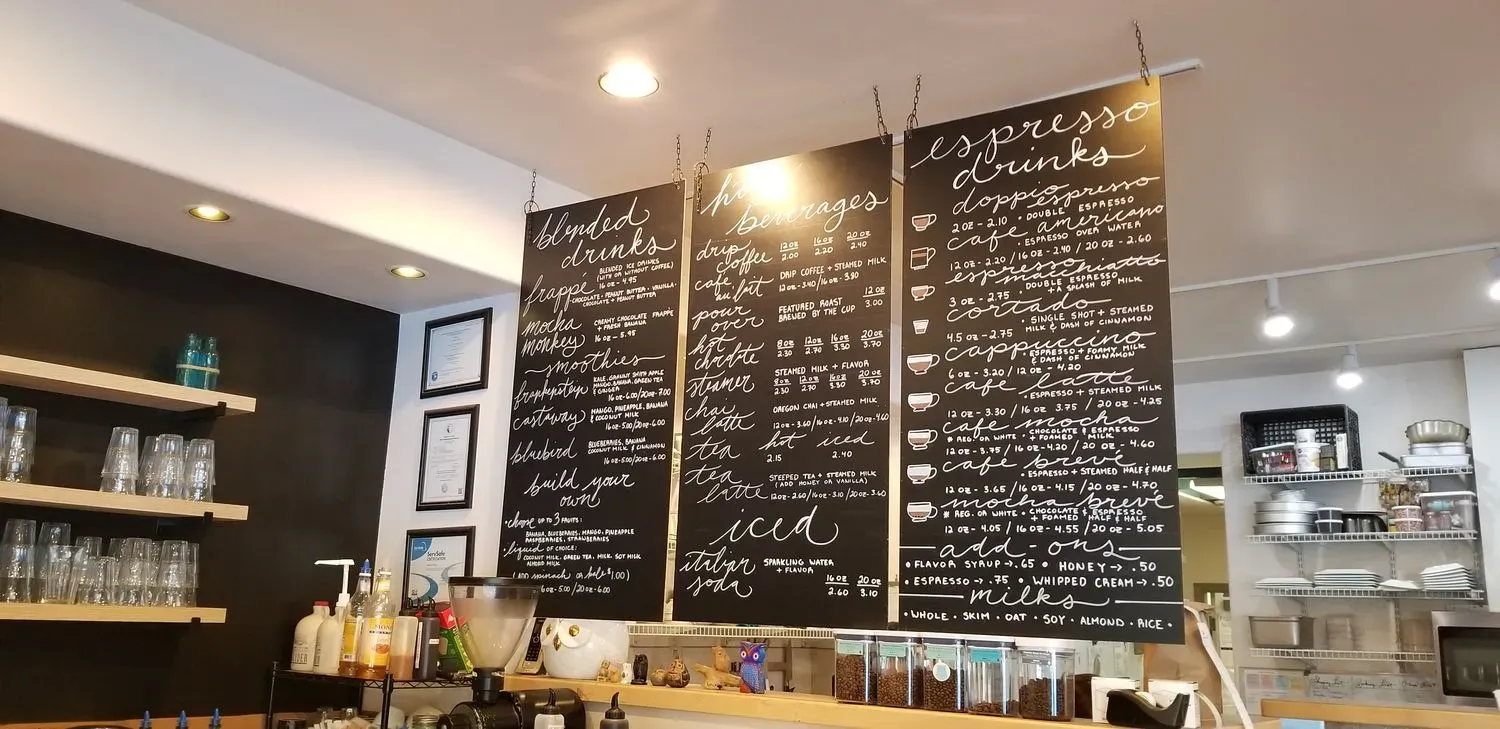 blended
drinks
frappé
BLENDED ICE DRINKS
(WITH OR WITHOUT COFFEE)
16 OZ - 4.95
CHOCOLATE · PEANUT BUTTER · VANILLA ·
CHOCOLATE + PEANUT BUTTER
mocha
monkey
CREAMY CHOCOLATE FRAPPE
+ FRESH BANANA
16 OZ - 5.95
smoothies
frankenstein
KALE, GRANNY SMITH APPLE
MANGO, BANANA, GREEN TEA
& GINGER
16 OZ-6.00/20 OZ-7.00
castaway
MANGO, PINEAPPLE, BANANA
& COCONUT MILK
16 OZ-5.00/20 OZ-6.00
bluebird
BLUEBERRIES, BANANA
COCONUT MILK & CINNAMON
16 OZ-5.00/20 OZ-6.00
build your
own
• choose UP TO 3 FRUITS:
BANANA, BLUEBERRIES, MANGO, PINEAPPLE
RASPBERRIES, STRAWBERRIES
• liquid OF CHOICE:
COCONUT MILK, GREEN TEA, MILK, SOY MILK
ALMOND MILK
(ADD spinach or kale $1.00)
16 OZ - 5.00 / 20 OZ - 6.00
beverages
drip
coffee
12 OZ 16 OZ 20 OZ
2.00 2.20 2.40
cafe
au lait
DRIP COFFEE + STEAMED MILK
12 OZ - 3.40 / 16 OZ - 3.90
pour
over
FEATURED ROAST
BREWED BY THE CUP
12 OZ
3.00
hot
8 OZ 12 OZ 16 OZ 20 OZ
2.30 2.70 3.30 3.70
steamer
STEAMED MILK + FLAVOR
8 OZ 12 OZ 16 OZ 20 OZ
2.30 2.70 3.30 3.70
chai
latte
OREGON CHAI + STEAMED MILK
12 OZ - 3.60 / 16 OZ - 4.10 / 20 OZ - 4.60
tea
hot iced
2.15 2.40
tea
latte
STEEPED TEA + STEAMED MILK
(ADD HONEY OR VANILLA)
12 OZ - 2.60 / 16 OZ - 3.10 / 20 OZ - 3.60
iced
italian
soda
SPARKLING WATER
+ FLAVOR
16 OZ 20 OZ
2.60 3.10
espresso
drinks
doppio espresso
2 OZ - 2.10 • DOUBLE ESPRESSO
cafe americano
• ESPRESSO OVER WATER
12 OZ - 2.20 / 16 OZ - 2.40 / 20 OZ - 2.60
espresso macchiatto
3 OZ - 2.75 • DOUBLE ESPRESSO
+ A SPLASH OF MILK
cortado
4.5 OZ - 2.75 • SINGLE SHOT + STEAMED
MILK & DASH OF CINNAMON
cappuccino
• ESPRESSO + FOAMY MILK
& DASH OF CINNAMON
6 OZ - 3.20 / 12 OZ - 4.20
cafe latte
• ESPRESSO + STEAMED MILK
12 OZ - 3.30 / 16 OZ 3.75 / 20 OZ - 4.25
cafe mocha
* REG. OR WHITE • CHOCOLATE & ESPRESSO
+ FOAMED MILK
12 OZ - 3.75 / 16 OZ - 4.20 / 20 OZ - 4.60
cafe brevé
• ESPRESSO + STEAMED HALF & HALF
12 OZ - 3.65 / 16 OZ - 4.15 / 20 OZ - 4.70
mocha brevé
* REG. OR WHITE • CHOCOLATE & ESPRESSO
+ FOAMED HALF & HALF
12 OZ - 4.05 / 16 OZ - 4.55 / 20 OZ - 5.05
add-ons
• FLAVOR SYRUP → .65 • HONEY → .50
• ESPRESSO → .75 • WHIPPED CREAM → .50
milks
• WHOLE · SKIM · OAT · SOY · ALMOND · RICE •
ServSafe